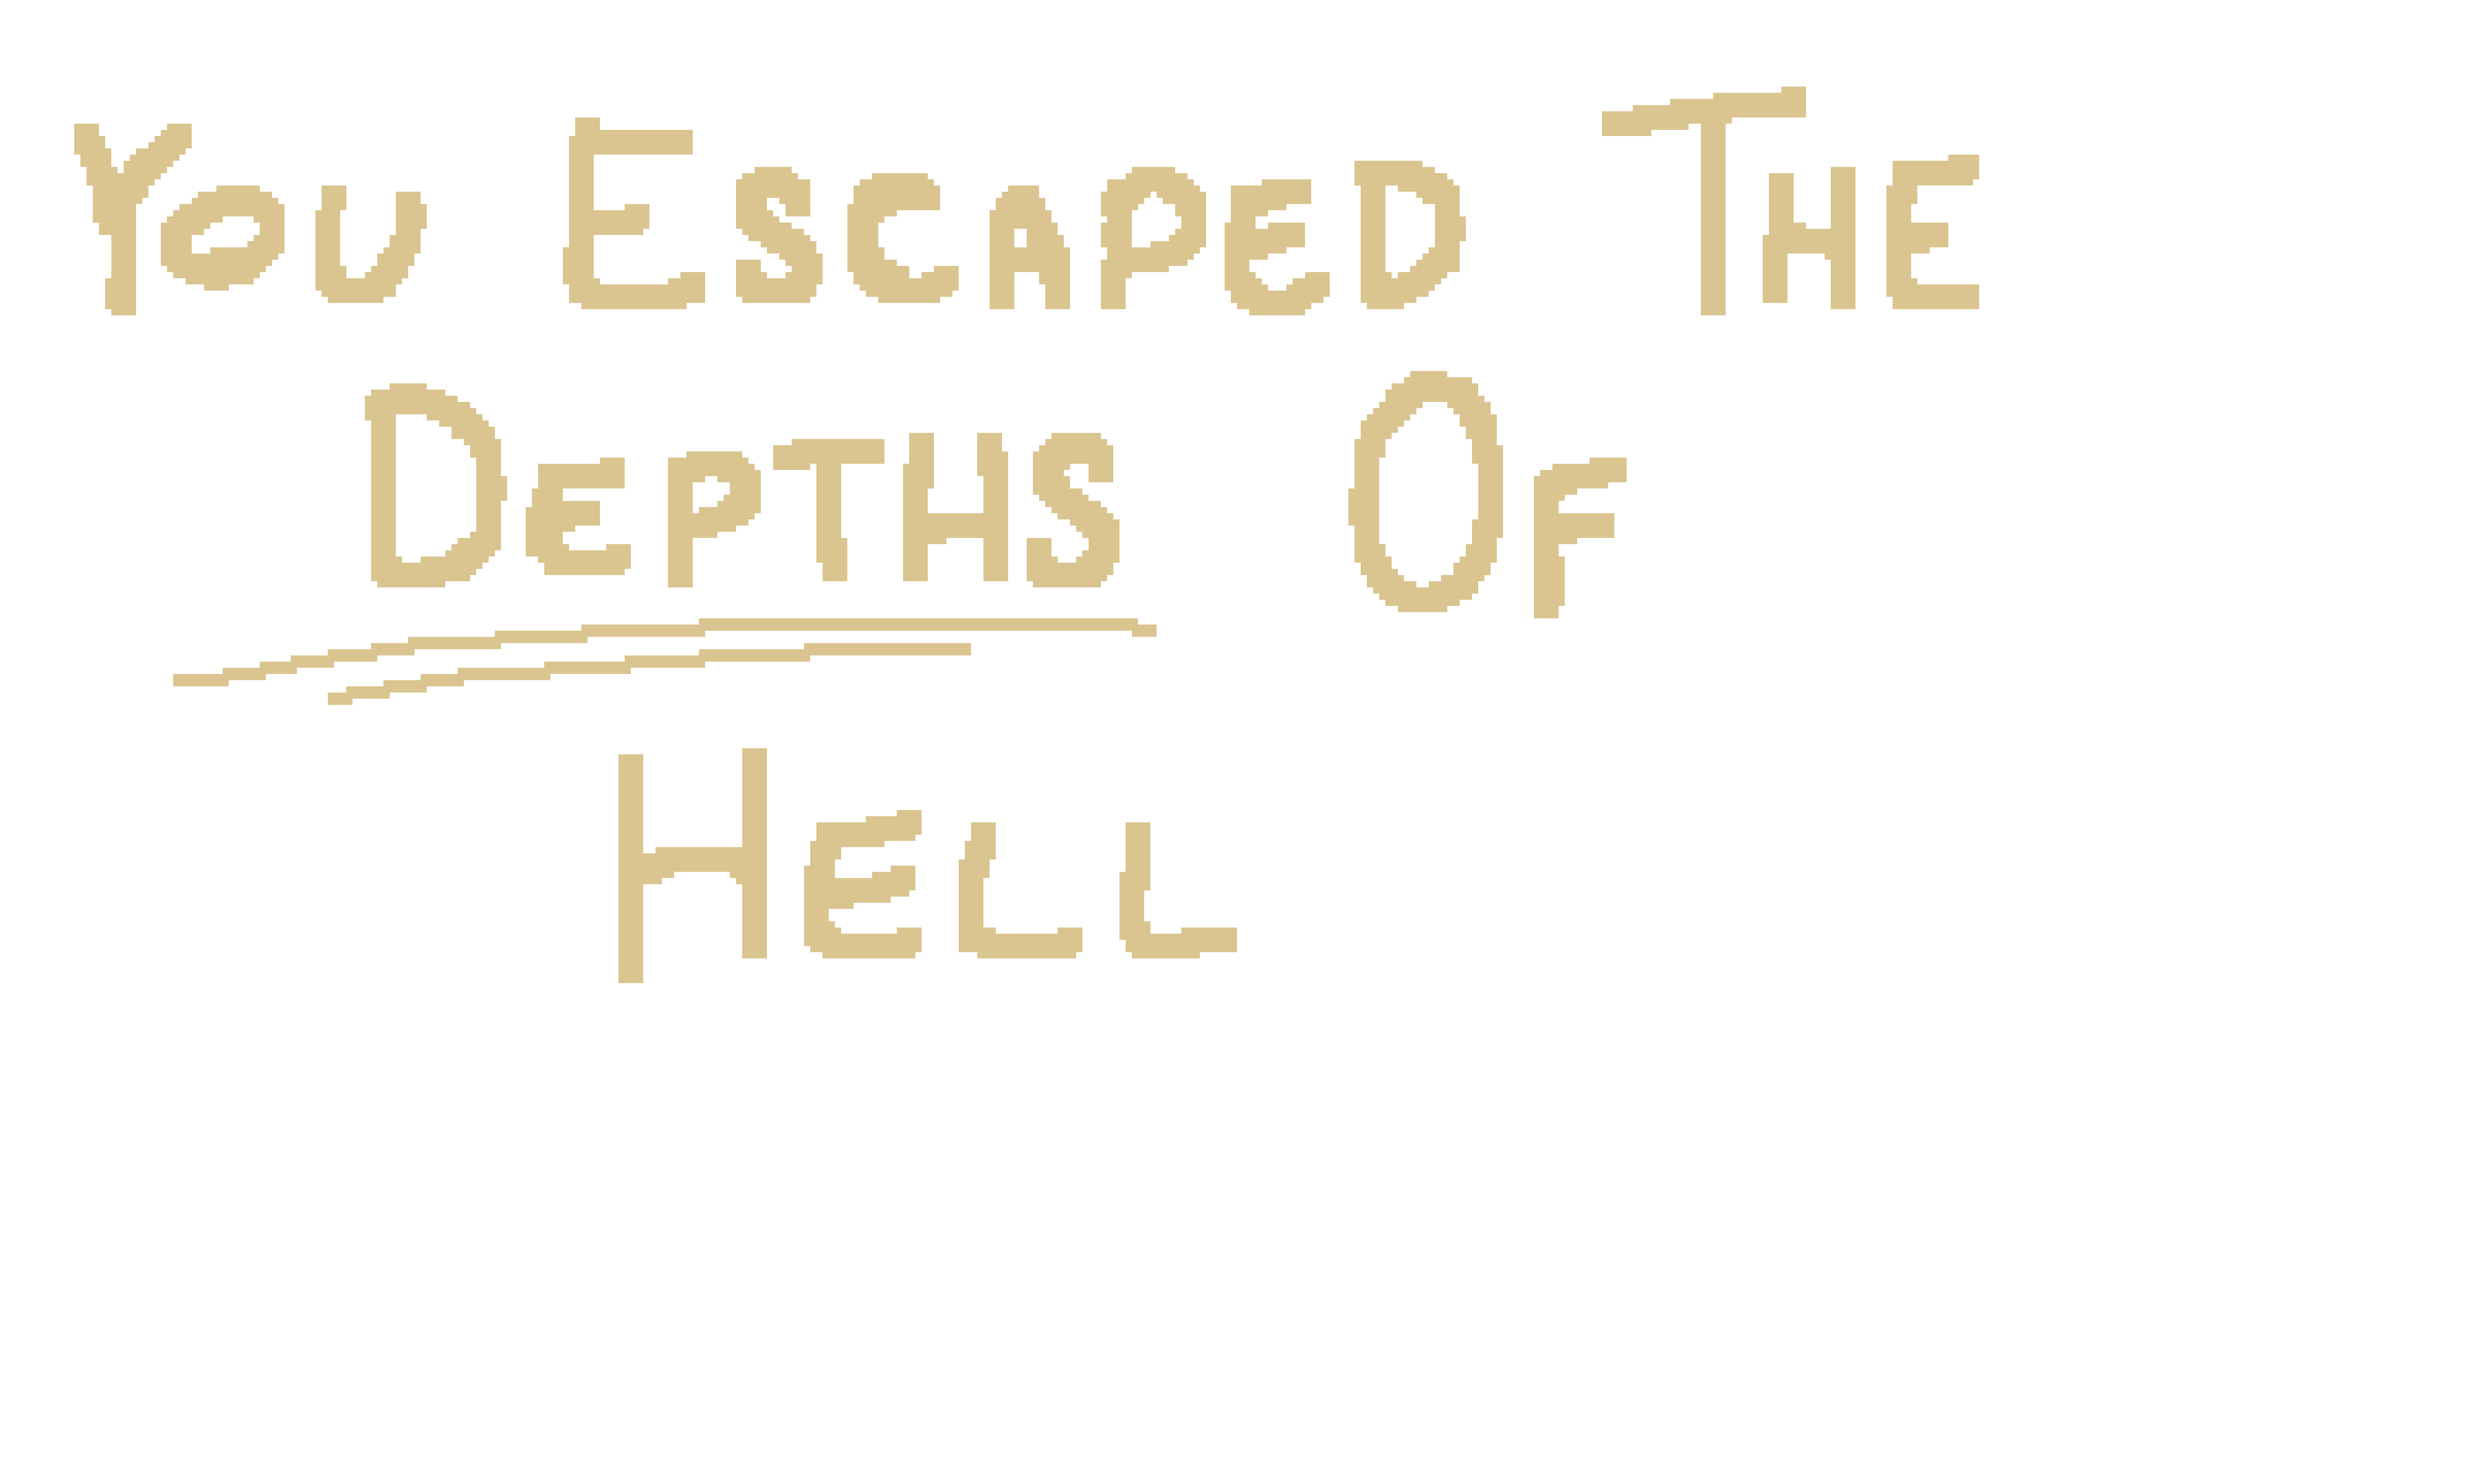 You Escaped The
Depths Of
Hell